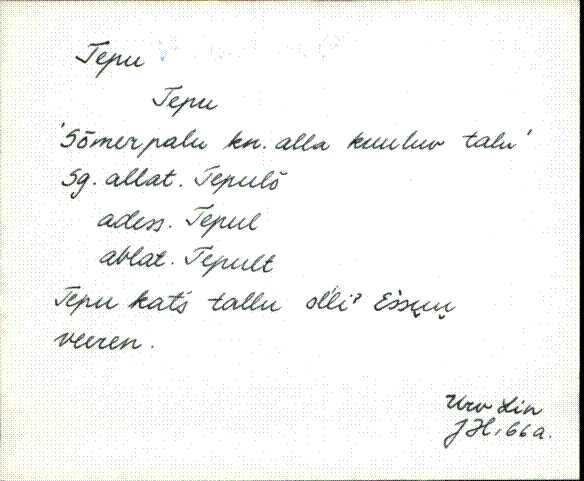 Tepu
Tepu
'Sõmerpalu kn. alla kuuluv talu'
Sg. allat. Tepulõ
adess. Tepul
ablat. Tepult
Tepu kat́s tallu
veeren.
Urv Lin